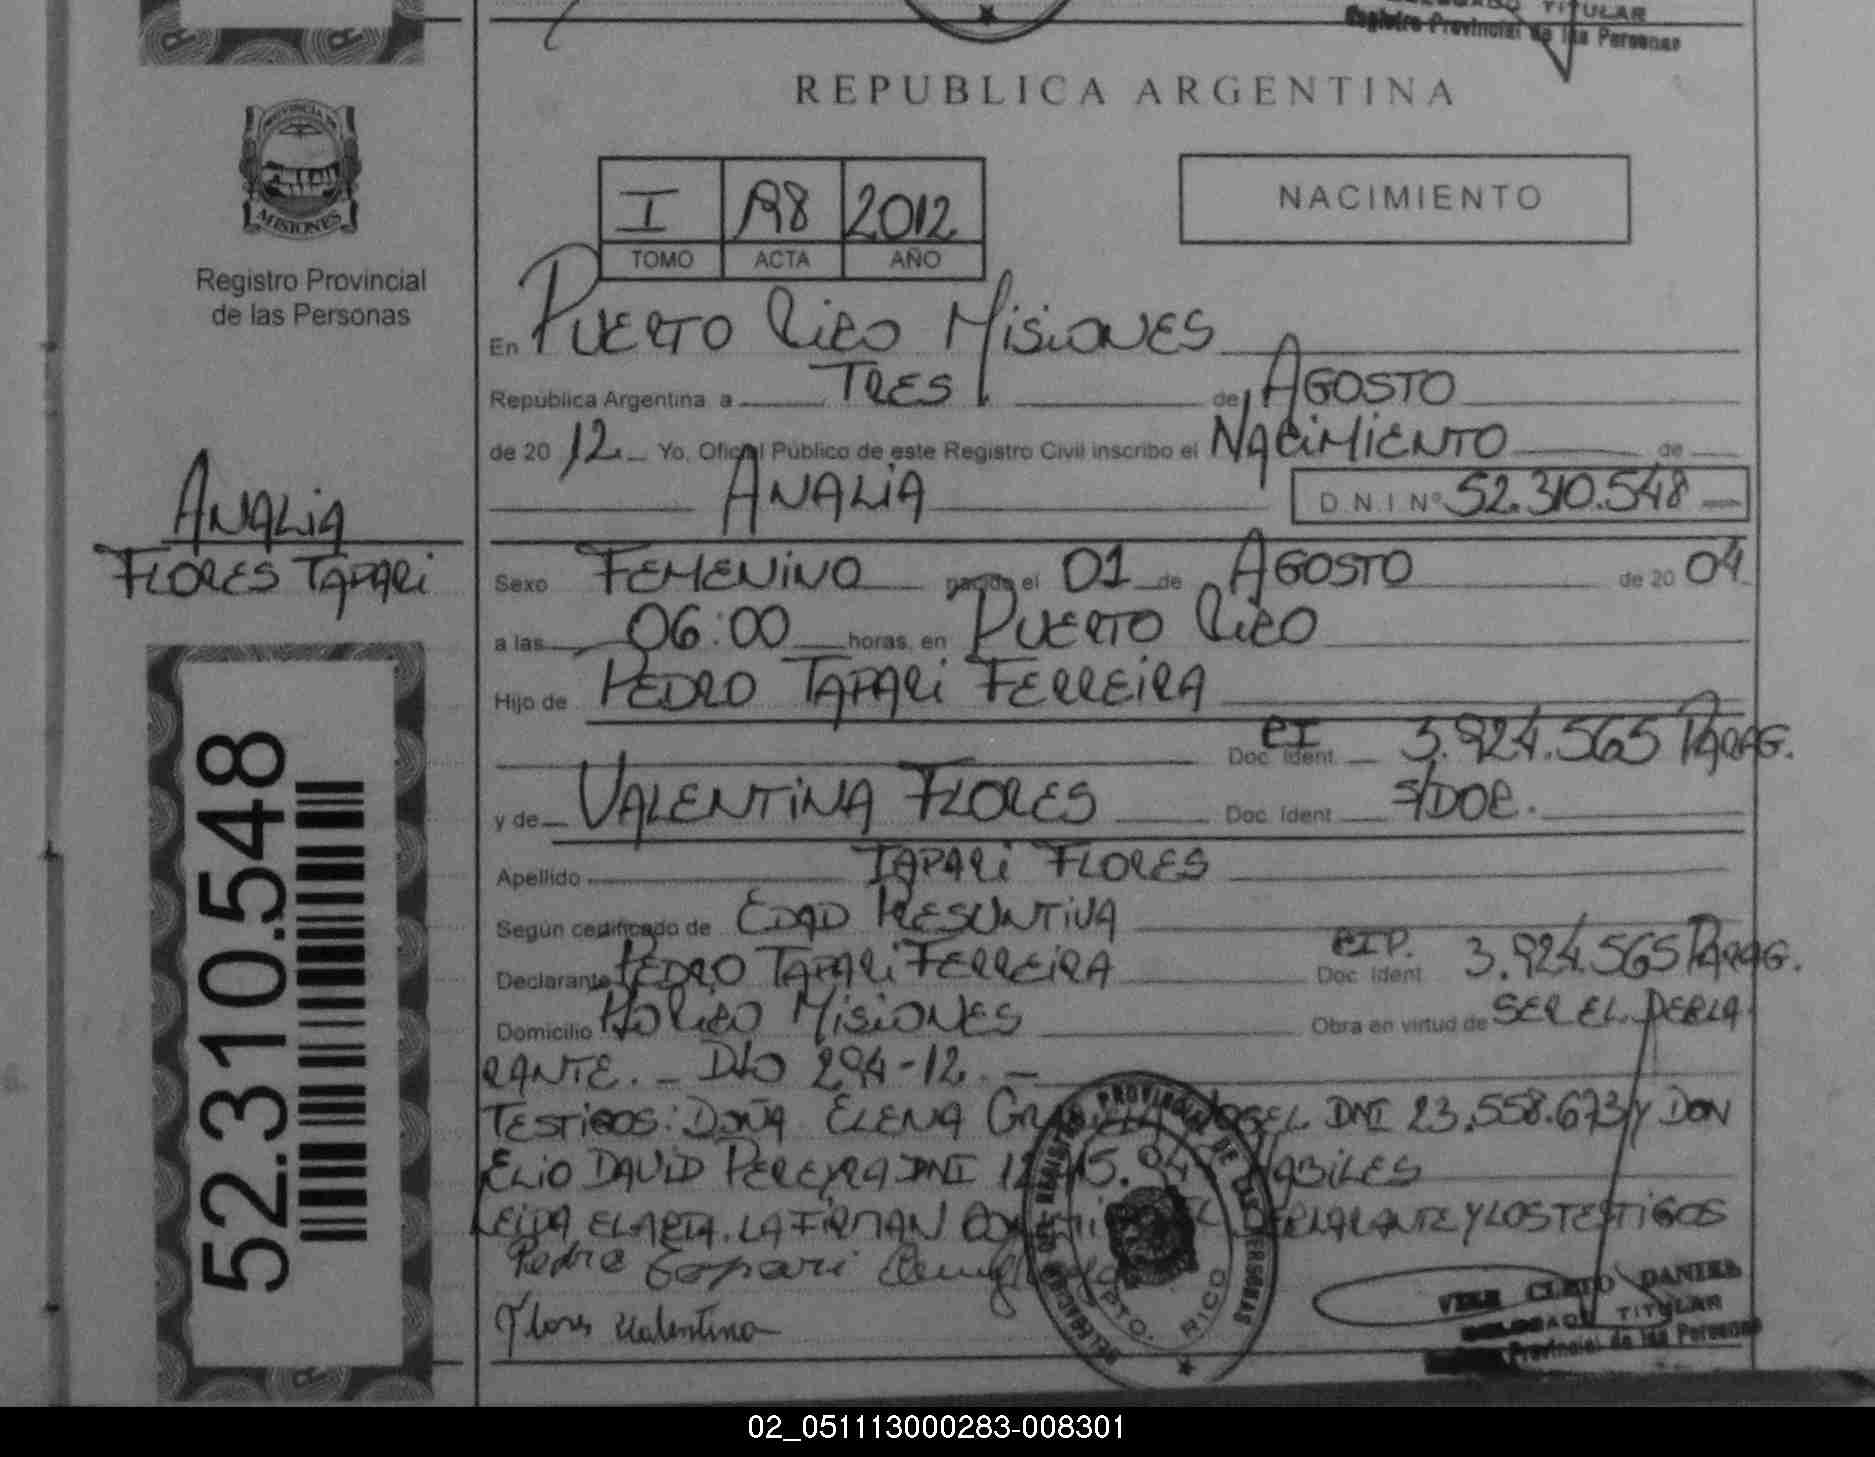 TITULAR
Registro Provincial de las Personas
REPUBLICA ARGENTINA
PROVINCIA DE
MISIONES
Registro Provincial
de las Personas
I 2012
TOMO ACTA AÑO
NACIMIENTO
En PUERTO RICO MISIONES
República Argentina a TRES de AGOSTO
de 20 12 Yo, Oficial Público de este Registro Civil inscribo el NACIMIENTO de
ANALIA D.N.I Nº 52.310.548
ANALIA
FLORES TAPARI
Sexo FEMENINO nacido el 01 de AGOSTO de 20 04
a las 06:00 horas, en PUERTO RICO
Hijo de PEDRO TAPARI FERREIRA
Doc. Ident. CI 3.924.565 PARAG.
y de VALENTINA FLORES Doc. Ident. S/DOC.
Apellido TAPARI FLORES
Según certificado de EDAD PRESUNTIVA
Declarante PEDRO TAPARI FERREIRA Doc. Ident. CIP. 3.924.565 PARAG.
Domicilio PTO RICO MISIONES Obra en virtud de SER EL DECLA
RANTE. - 294-12. -
TESTIGOS: DOÑA ELENA DNI 23.558.673 Y DON
ELIO DAVID PEREYRA DNI HABILES
LEIDA EL ACTA. LA FIRMAN DECLARANTE Y LOS TESTIGOS
Pedro Tapari
Flores Valentina
52.310.548
PROVINCIAL DE LAS PERSONAS
PTO. RICO
DANIEL
DELEGADO TITULAR
Provincial de las Personas
02_051113000283-008301